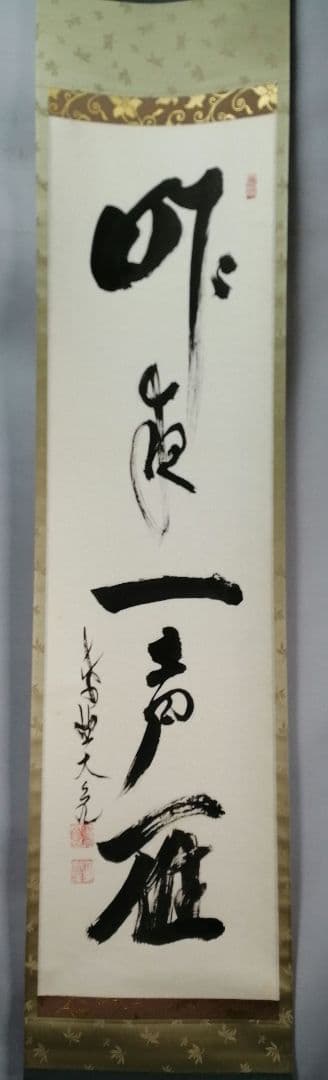 昨夜一声雁
大亀